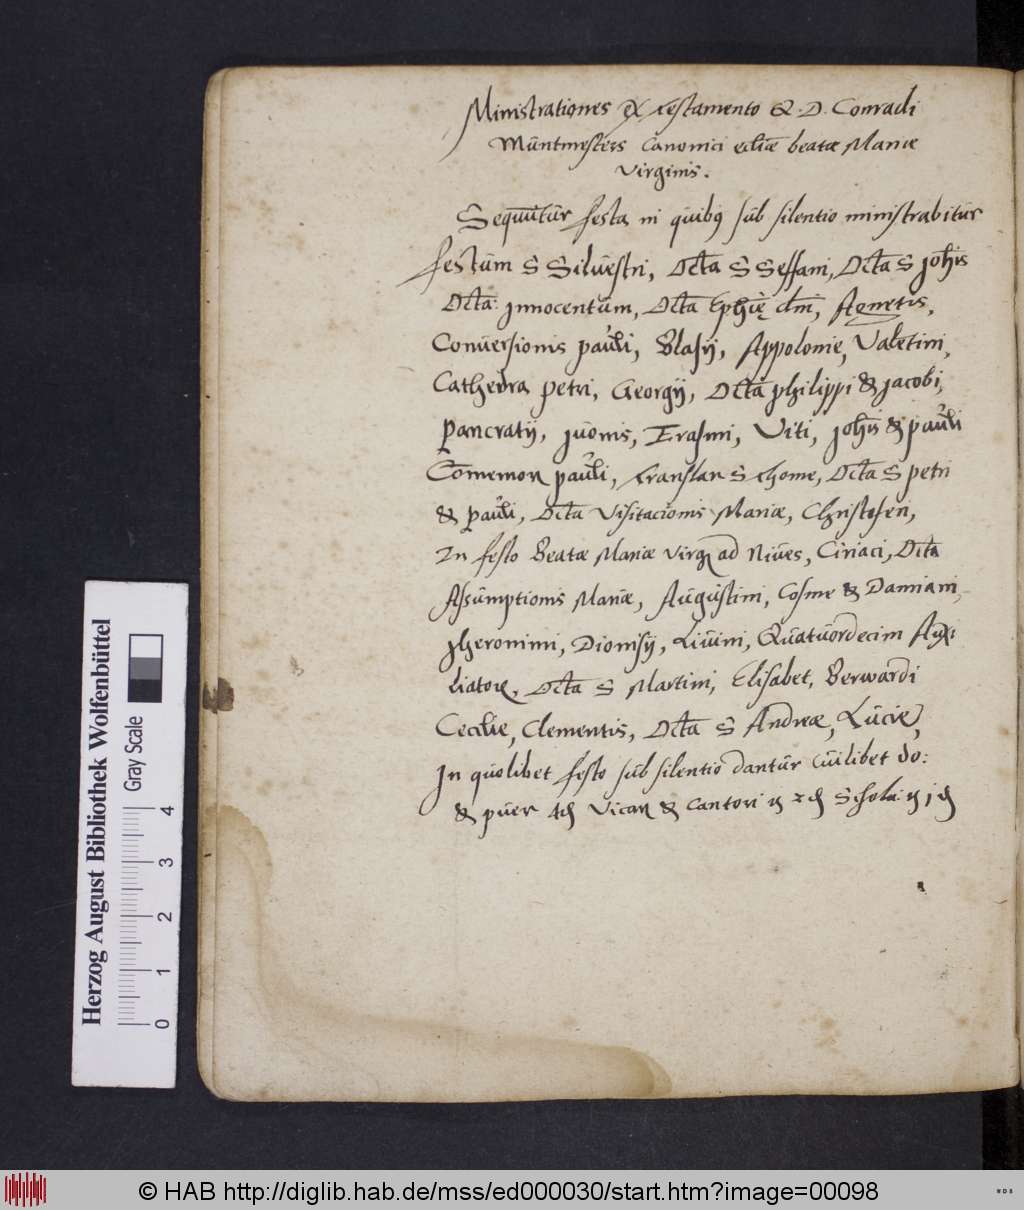 Ministrationes ex testamento & D. Conradi
Müntmesters Canonici eccliæ beatæ Mariæ
Virginis.
Sequūtūr festa in quibꝫ sūb silentio ministrabitūr
festūm S Silvestri, Octa S Steffani, Octa S Johis
Octa: Innocentūm, Octa Ephiē dni, Agnetis,
Conversionis paūli, Blasij, Appolonie, Valētini,
Cathedra petri, Georgij, Octa philippi & jacobi,
pancratij, Jvonis, Erasmi, Viti, Johis & paūli
Cōmemor paūli, translat S thome, Octa S petri
& paūli, Octa visitacionis Mariæ, Christoferi,
In festo Beatæ Mariæ virg ad Nives, Ciriaci, Octa
Assūmptionis Mariæ, Aūgūstini, Cosme & Damiani,
Jheronimi, Dionisij, Livini, Qūatūordecim Aūxi:
liatorꝝ, Octa S Martini, Elisabet, Berwardi
Cecilie, Clementis, Octa S Andreæ, Lūcie,
In qūolibet festo sūb silentio dantūr cūilibet do:
& pūer 4 Vicar & Cantori Schola:
Herzog August Bibliothek Wolfenbüttel
Gray Scale
0 1 2 3 4
© HAB http://diglib.hab.de/mss/ed000030/start.htm?image=00098